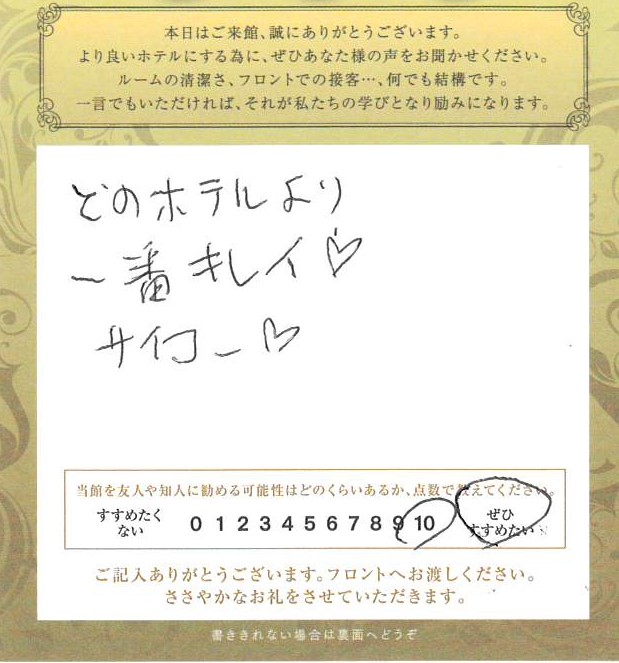 本日はご来館、誠にありがとうございます。
より良いホテルにする為に、ぜひあなた様の声をお聞かせください。
ルームの清潔さ、フロントでの接客…、何でも結構です。
一言でもいただければ、それが私たちの学びとなり励みになります。
どのホテルより
一番キレイ♡
サイコー♡
当館を友人や知人に勧める可能性はどのくらいあるか、点数で教えてください。
すすめたくない 0 1 2 3 4 5 6 7 8 9 10 ぜひすすめたい
ご記入ありがとうございます。フロントへお渡しください。
ささやかなお礼をさせていただきます。
書ききれない場合は裏面へどうぞ